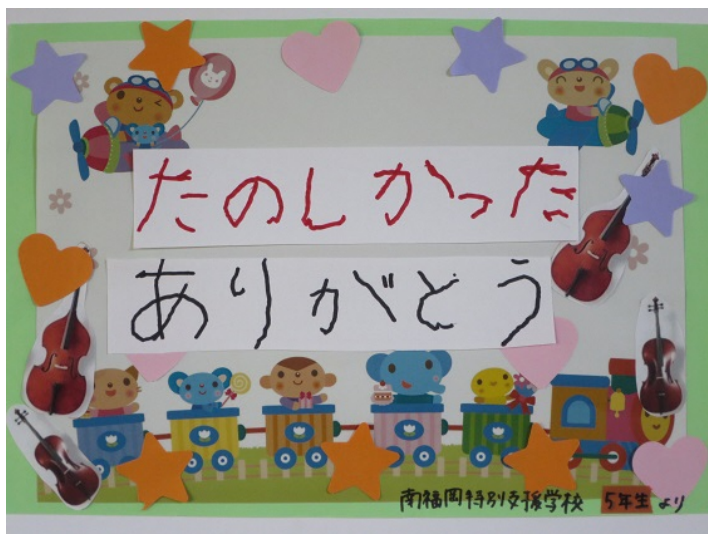 たのしかった
ありがとう
南福岡特別支援学校 5年生 より